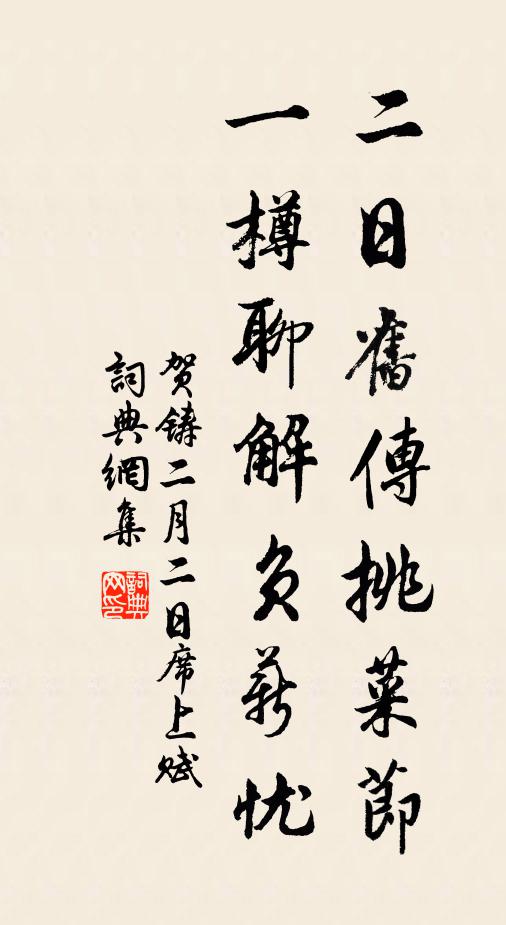 二日舊傳挑菜節
一樽聊解負薪忧
贺鑄二月二日席上賦
詞典網集
詞典网印